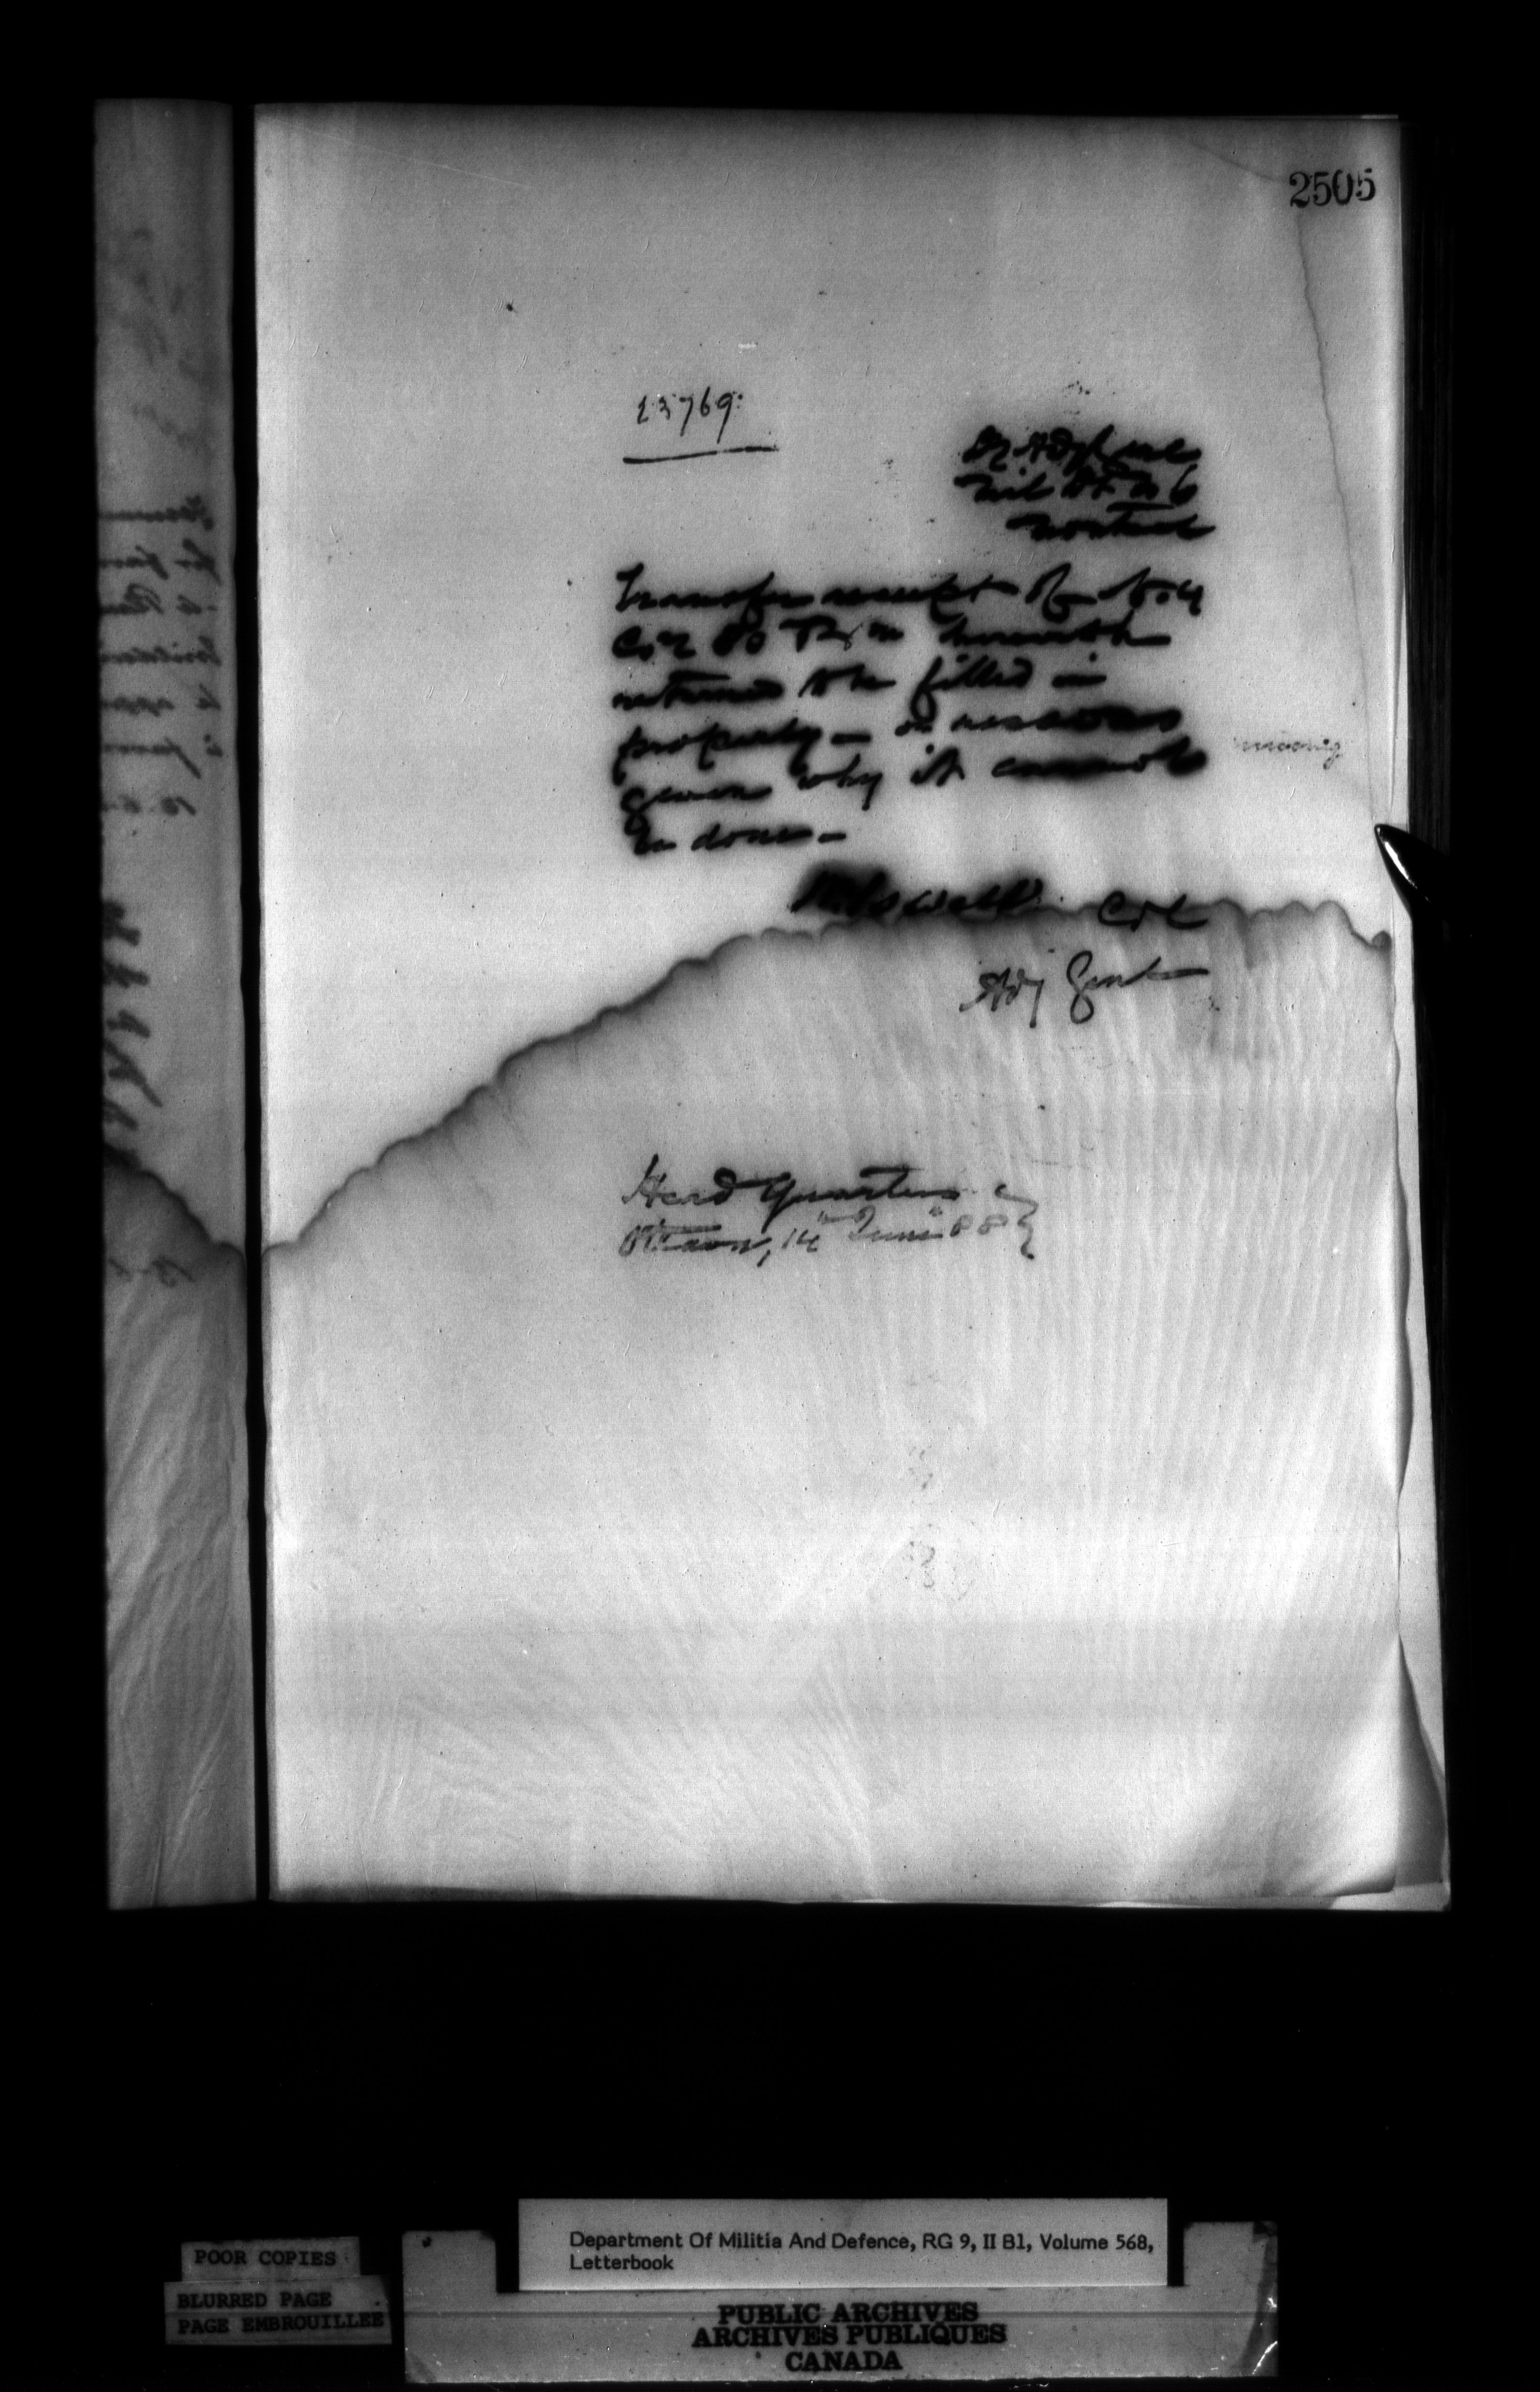 2505
23769.
Dy Adjt Genl
Mil Dt No 6
Montreal
Transfer receipt of No. 4
Coy 80 Bn herewith
returned to be filled in
properly - or reasons
given why it cannot
be done -
Powell Col
Adj Genl
Head Quarters
Ottawa, 14 June 88
Department Of Militia And Defence, RG 9, II B1, Volume 568,
Letterbook
POOR COPIES
BLURRED PAGE
PAGE EMBROUILLEE
PUBLIC ARCHIVES
ARCHIVES PUBLIQUES
CANADA